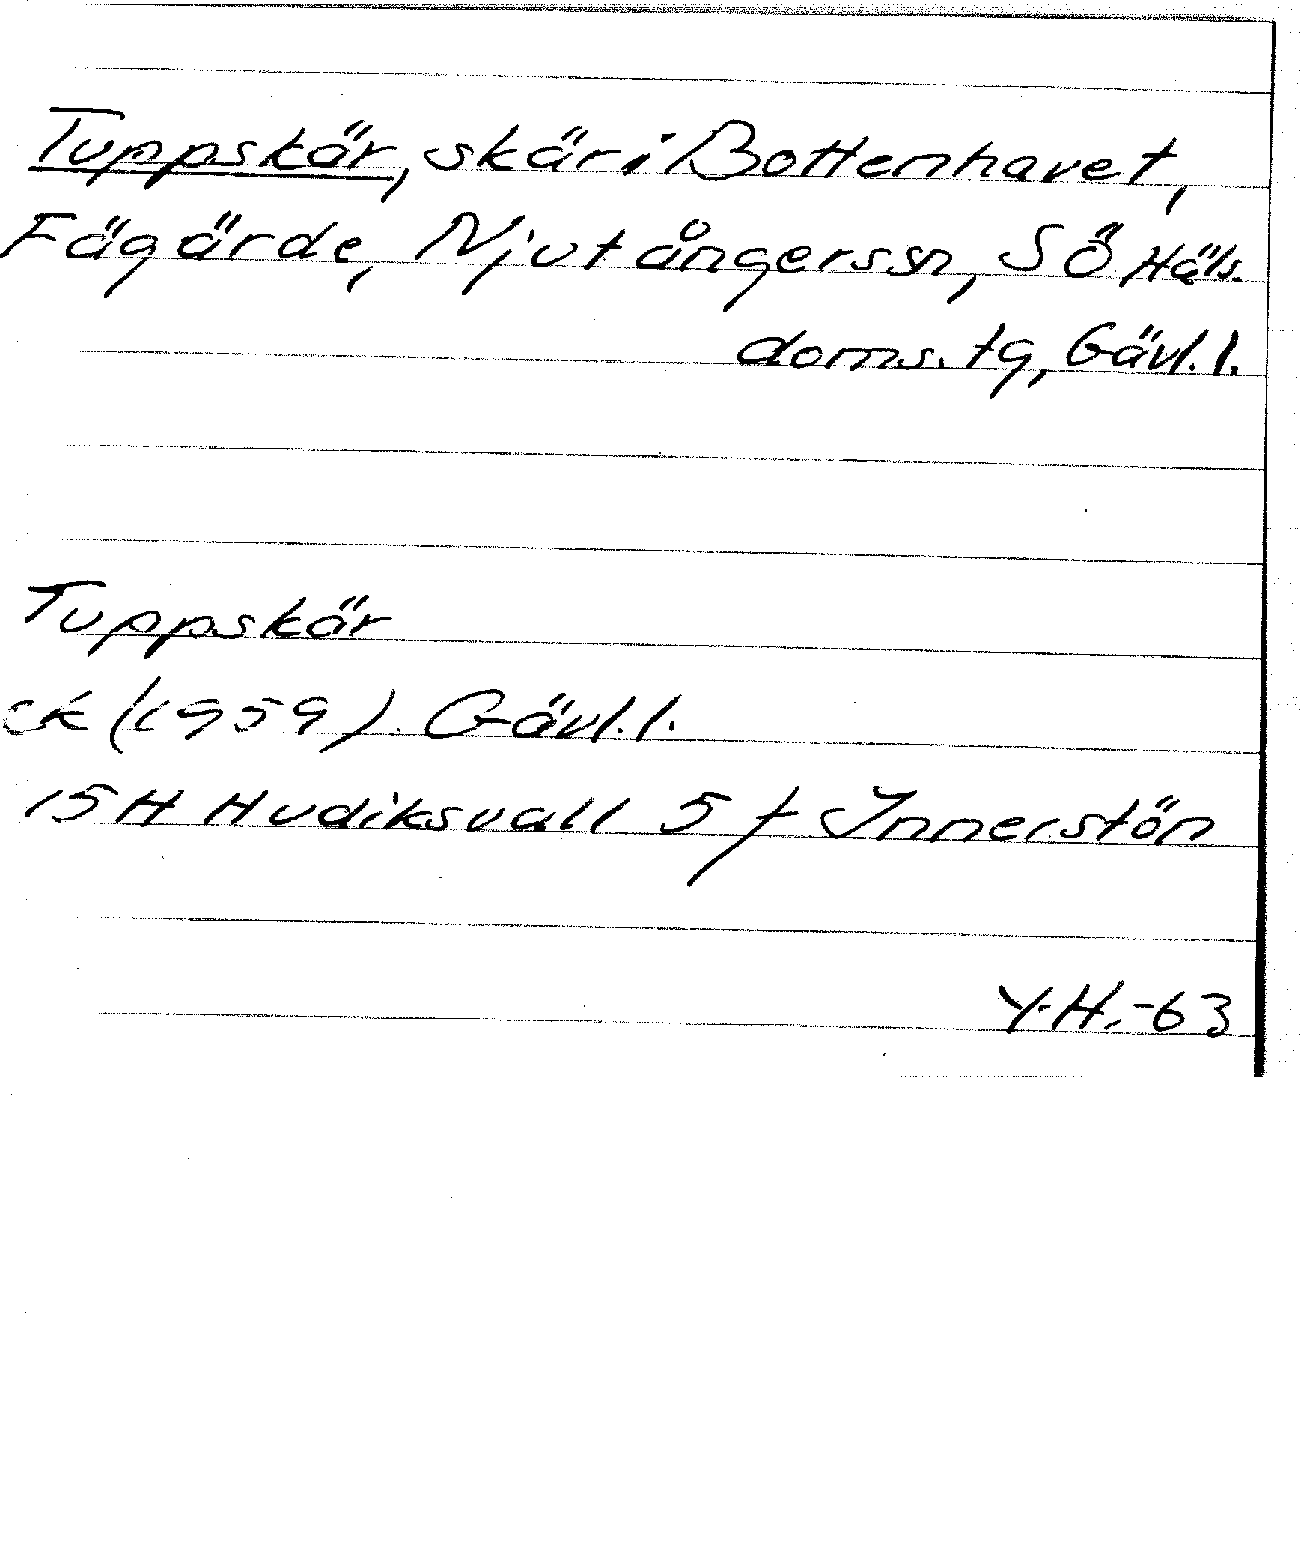 Tuppskär, skär i Bottenhavet,
Fägärde, Njutångers sn, SÖ Häls.
doms. tg, Gävl.l.
Tuppskär
ek (1959). Gävl.l.
15H Hudiksvall 5 f Innerstön
Y.H.-63